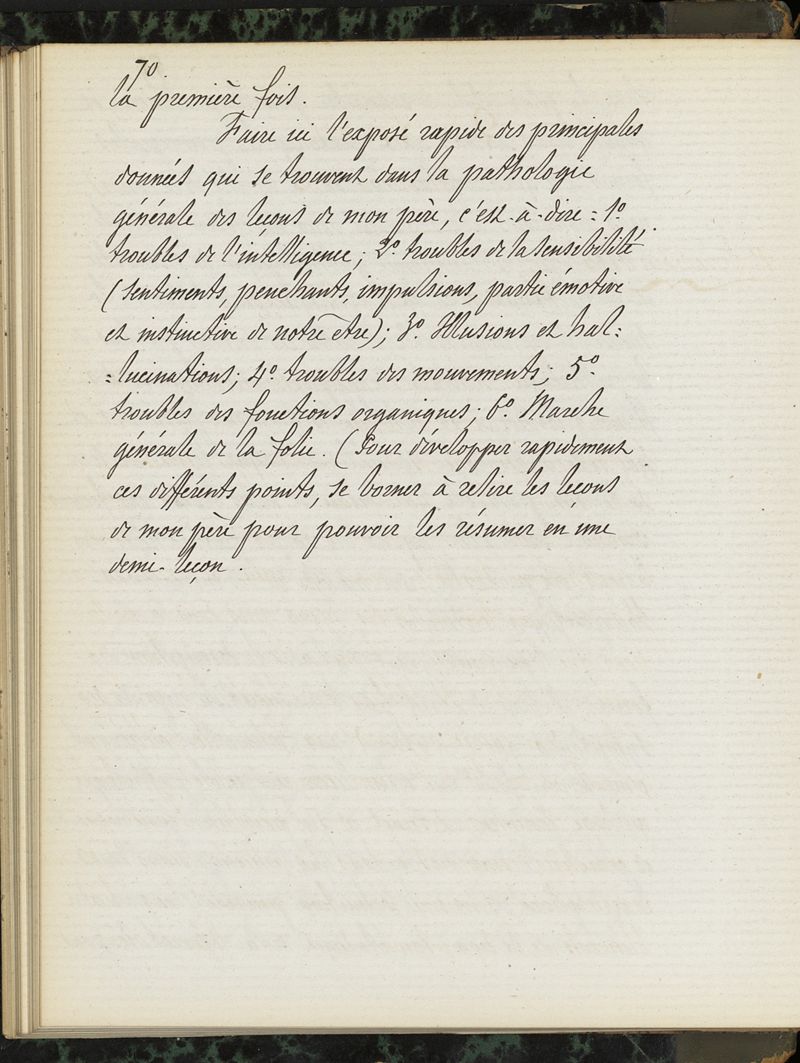 70
la première fois.
Faire ici l'exposé rapide des principales
données qui se trouvent dans la pathologie
générale des leçons de mon père, c'est-à-dire = 1º.
troubles de l'intelligence; 2º. troubles de la sensibilité
(sentiments, penchants, impulsions, partie émotive
et instinctive de notre être); 3º. Illusions et hal=
=lucinations; 4º. troubles des mouvements; 5º.
troubles des fonctions organiques; 6º. Marche
générale de la folie. (Pour développer rapidement
ces différents points, se borner à relire les leçons
de mon père pour pouvoir les résumer en une
demi-leçon.